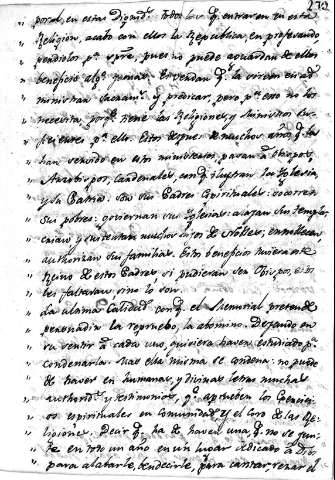 272
" poral, en estas Dignid.s todos los q. entran en esta
" Religion, acabo con ellos la Republica, en profesando
" pendiolos p.a spre, pues no puede aguardar de ellos
" beneficio alg.o jamas. Responden q. la sirven en ad
" ministrar Sacram.s y predicar, pero p.a esso no los
" necesita, porq. tiene las Religiones, y Ministros su
" ficientes p.a ello. Estos despues de muchos años q. la
" han servido en este ministerio, pasan a Obispos,
" Arzobispos, Cardenales, con q. ilustran la Iglesia
" y su Patria. Son sus Padres Espirituales: socorren
" sus pobres: goviernan sus Iglesias: avazan sus templos
" crian y sustentan muchos hijos de Nobles, ennoblecen
" authorizan sus familias. Este beneficio tuviera este
" Reino de estos Padres si pudieran ser Obispos, y esto
" les faltara si no lo son.
" La ultima Calidad con q. el Memorial pretende
" persuadir la repruebo, la abomino. Dejando en
" su sentir a cada uno, quisiera haver estudiado p.a
" Condenarla. Mas ella misma se condena: no puede
" de haver en humanas, y divinas letras muchas
" authorid.s y testimonios, q. aprueben los Exercici
" os espirituales en Comunidad y el Coro de las Re
" ligiones. Decir q. ha de haver una q. no se jun
" te en todo un año en un lugar dedicado a Dios
" para alabarle, bendecirle, para cantar, rezar el